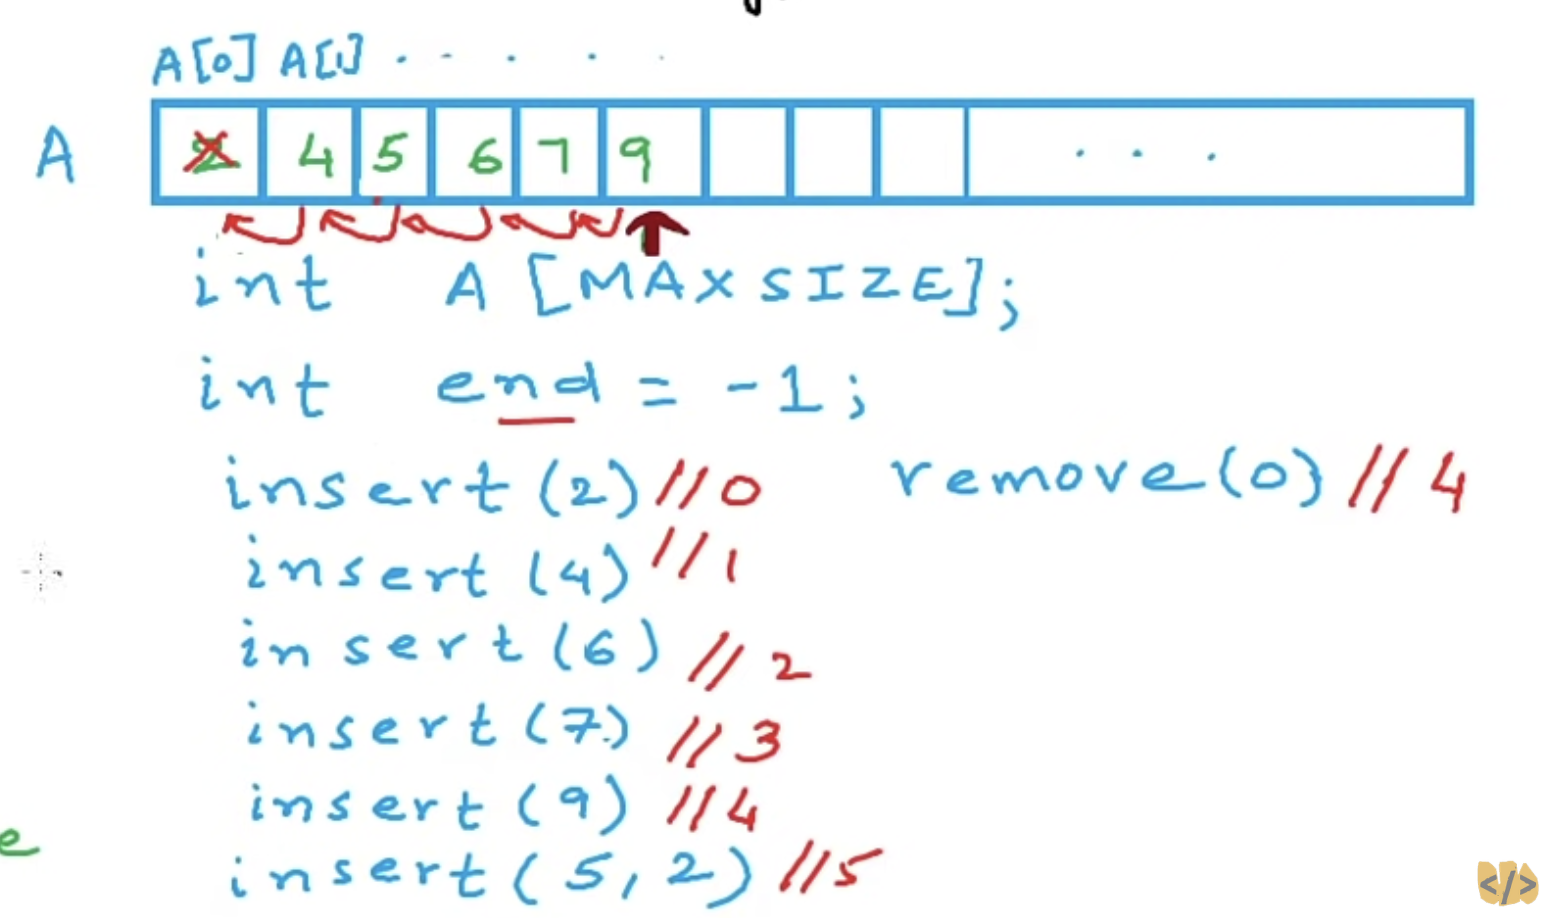 A[0] A[1] . . . . .
A 2 4 5 6 7 9 . . .
int A [MAXSIZE];
int end = -1;
insert (2) //0 remove(0) //4
insert (4) //1
insert (6) //2
insert (7) //3
insert (9) //4
e
insert (5,2) //5
</>